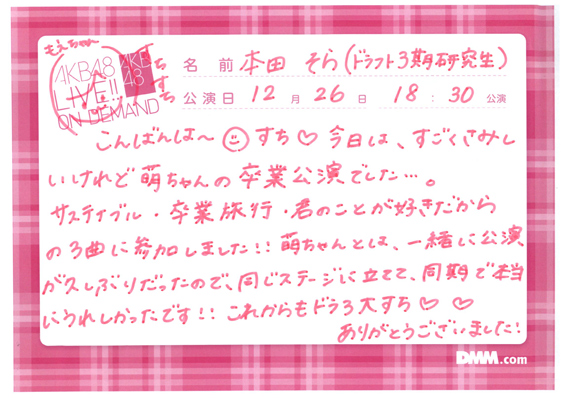 もえちゃん
AKB48
LIVE!!
ON DEMAND
AKB
48
すちすち
名前 本田 そら(ドラフト3期研究生)
公演日 12月26日 18:30公演
こんばんは〜 すち♡ 今日は、すごくさみし
いけれど萌ちゃんの卒業公演でした…。
サステイブル・卒業旅行・君のことが好きだから
の3曲に参加しました!! 萌ちゃんとは、一緒に公演
が久しぶりだったので、同じステージに立てて、同期で本当
にうれしかったです!! これからもドラ3大すち♡ ♡
ありがとうございました!
DMM.com